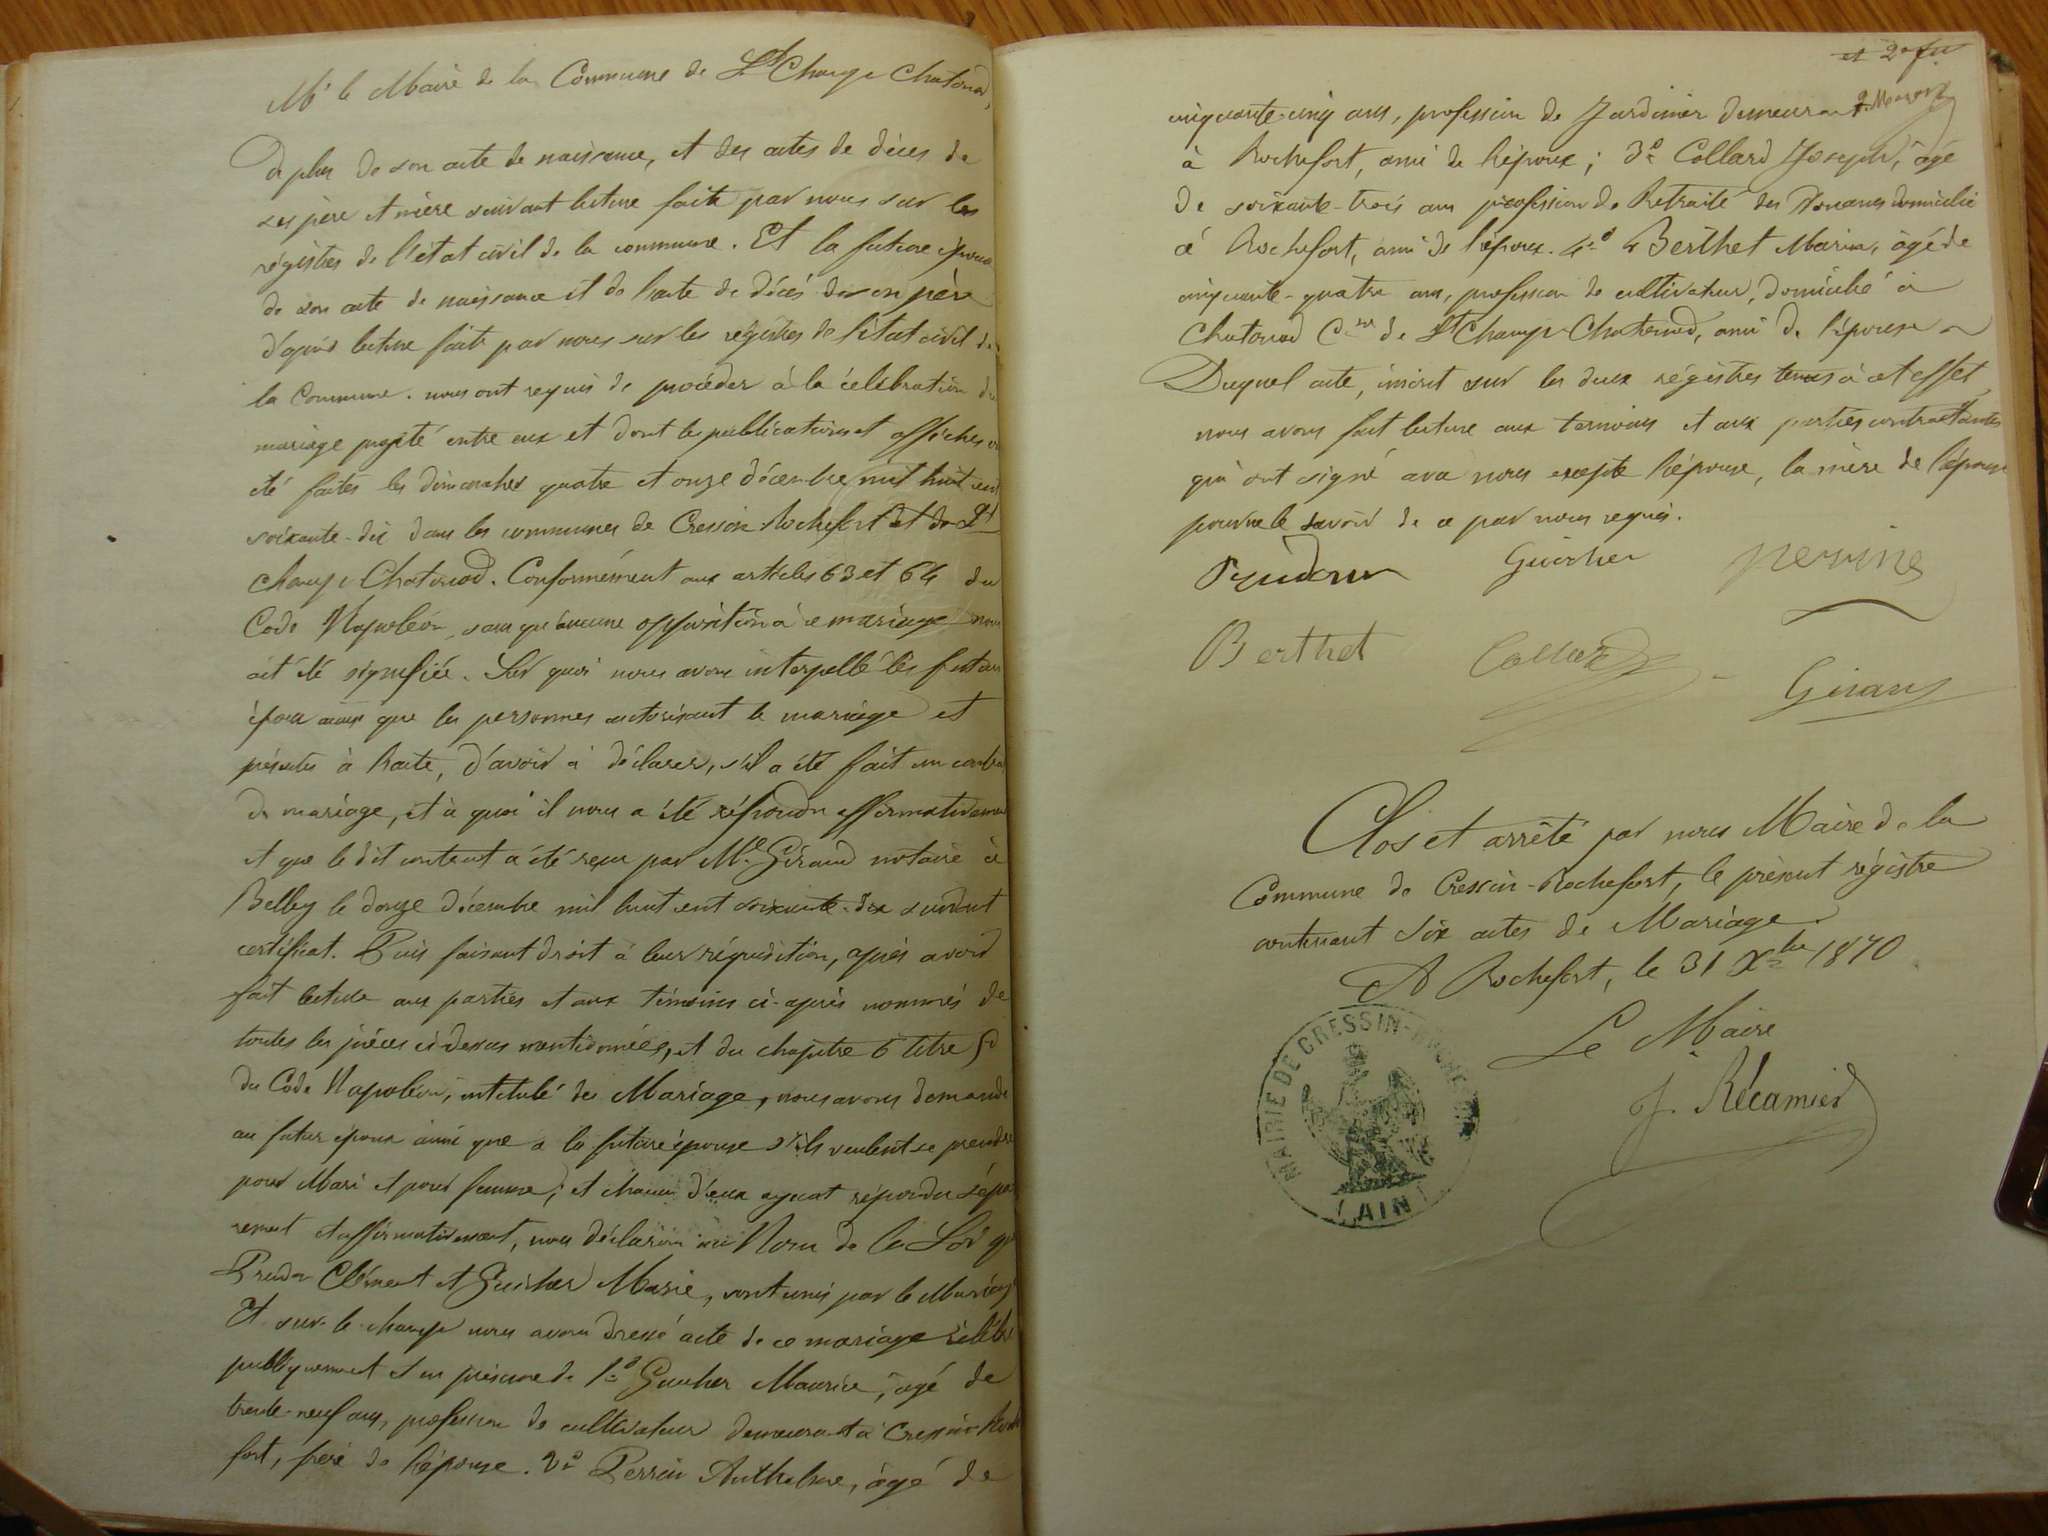 Mr le Maire de la Commune de St Champ Chatonod,
De plus de son acte de naissance, et des actes de décès de
ses père et mère suivant lecture faite par nous sur les
régistres de l'état civil de la commune. Et la future épouse
de son acte de naissance et de l'acte de décès de son père
d'après lecture faite par nous sur les régistres de l'état civil de
la Commune. nous ont requis de procéder à la célébration du
mariage projeté entre eux et dont les publications et affiches ont
été faites les dimanches quatre et onze décembre mil huit cent
soixante-dix dans les communes de Cressin Rochefort et de St
Champ Chatonod. Conformément aux articles 63 et 64 du
Code Napoléon, sans qu'aucune opposition à ce mariage nous
ait été signifiée. Sur quoi nous avons interpellé les futurs
époux ainsi que les personnes autorisant le mariage et
présentes à l'acte, d'avoir à déclarer, s'il a été fait un contrat
de mariage, et à quoi il nous a été répondu affirmativement
et que le dit contrat a été reçu par Me Géraud notaire à
Belley le douze décembre mil huit cent soixante-dix suivant
certificat. Puis faisant droit à leur réquisition, après avoir
fait lecture aux parties et aux témoins ci-après nommés de
toutes les pièces ci-dessus mentionnées, et du chapitre 6 titre 5
du Code Napoléon, intitulé du Mariage, nous avons demandé
au futur époux ainsi que a la future épouse s'ils veulent se prendre
pour Mari et pour femme; et chacun d'eux ayant répondu sépa
rement et affirmativement, nous déclarons au Nom de la Loi que
Prudon Clément et Guicher Marie, sont unis par le Mariage
Et sur-le-champ nous avons dressé acte de ce mariage célébré
publiquement et en présence de 1o Guicher Maurice, âgé de
trente-neuf ans, profession de cultivateur demeurant à Cressin Roche
fort, frère de l'épouse. 2o Perrin Anthelme, âgé de
et 2e
cinquante-cinq ans, profession de Jardinier demeurant
à Rochefort, ami de l'époux; 3o Collard Joseph, âgé
de soixante-trois ans profession de Retraité des Douanes domicilié
à Rochefort, ami de l'époux. 4o Berthet Marin, âgé de
cinquante-quatre ans, profession de cultivateur, domicilié à
Chatonod Cne de St Champ-Chatonod, ami de l'épouse
Duquel acte, inscrit sur les deux régistres tenus à cet effet,
nous avons fait lecture aux témoins et aux parties contractantes
qui ont signé avec nous excepté l'épouse, la mère de l'épouse
pour ne le savoir de ce par nous requis.
Prudon Guicher Perrin
Berthet Collard
Clos et arrêté par nous Maire de la
Commune de Cressin-Rochefort, le présent régistre
contenant six actes de Mariage.
A Rochefort, le 31 Xbre 1870
Le Maire
J. Récamier
MAIRIE DE CRESSIN-ROCHEFORT
(AIN)